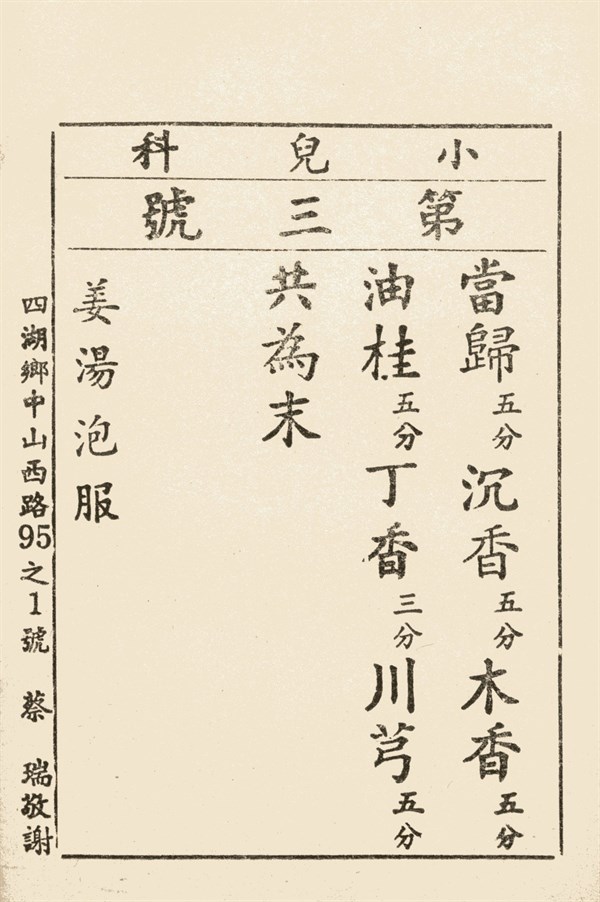 小兒科
第三號
當歸五分沉香五分木香五分
油桂五分丁香三分川芎五分
共為末
姜湯泡服
四湖鄉中山西路95之1號 蔡 瑞敬謝